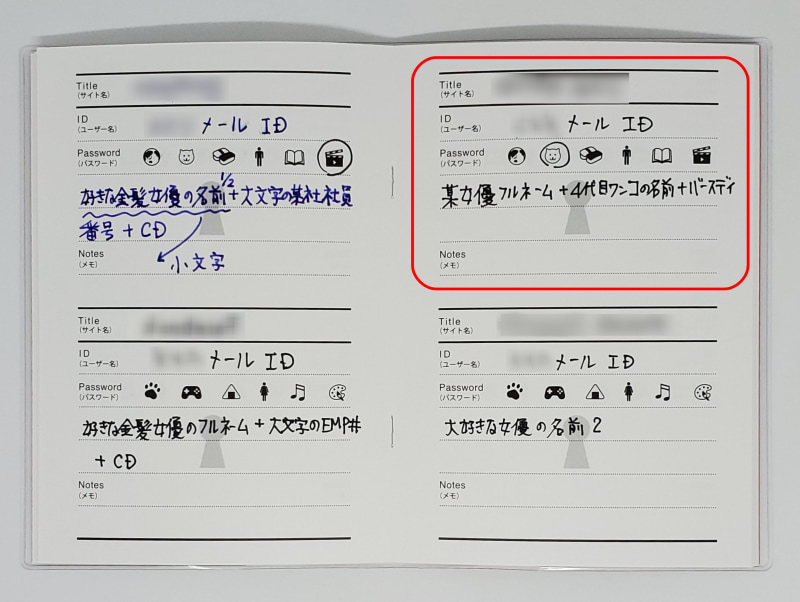 Title
(サイト名)
ID
(ユーザー名)
メール ID
Password
(パスワード)
好きな金髪女優の名前1/2+大文字の某社社員
番号 + CD
小文字
Notes
(メモ)
Title
(サイト名)
ID
(ユーザー名)
メール ID
Password
(パスワード)
好きな金髪女優のフルネーム + 大文字のEMP#
+ CD
Notes
(メモ)
Title
(サイト名)
ID
(ユーザー名)
メール ID
Password
(パスワード)
某女優フルネーム + 4代目ワンコの名前+バースディ
Notes
(メモ)
Title
(サイト名)
ID
(ユーザー名)
メール ID
Password
(パスワード)
大好きな女優の名前 2
Notes
(メモ)